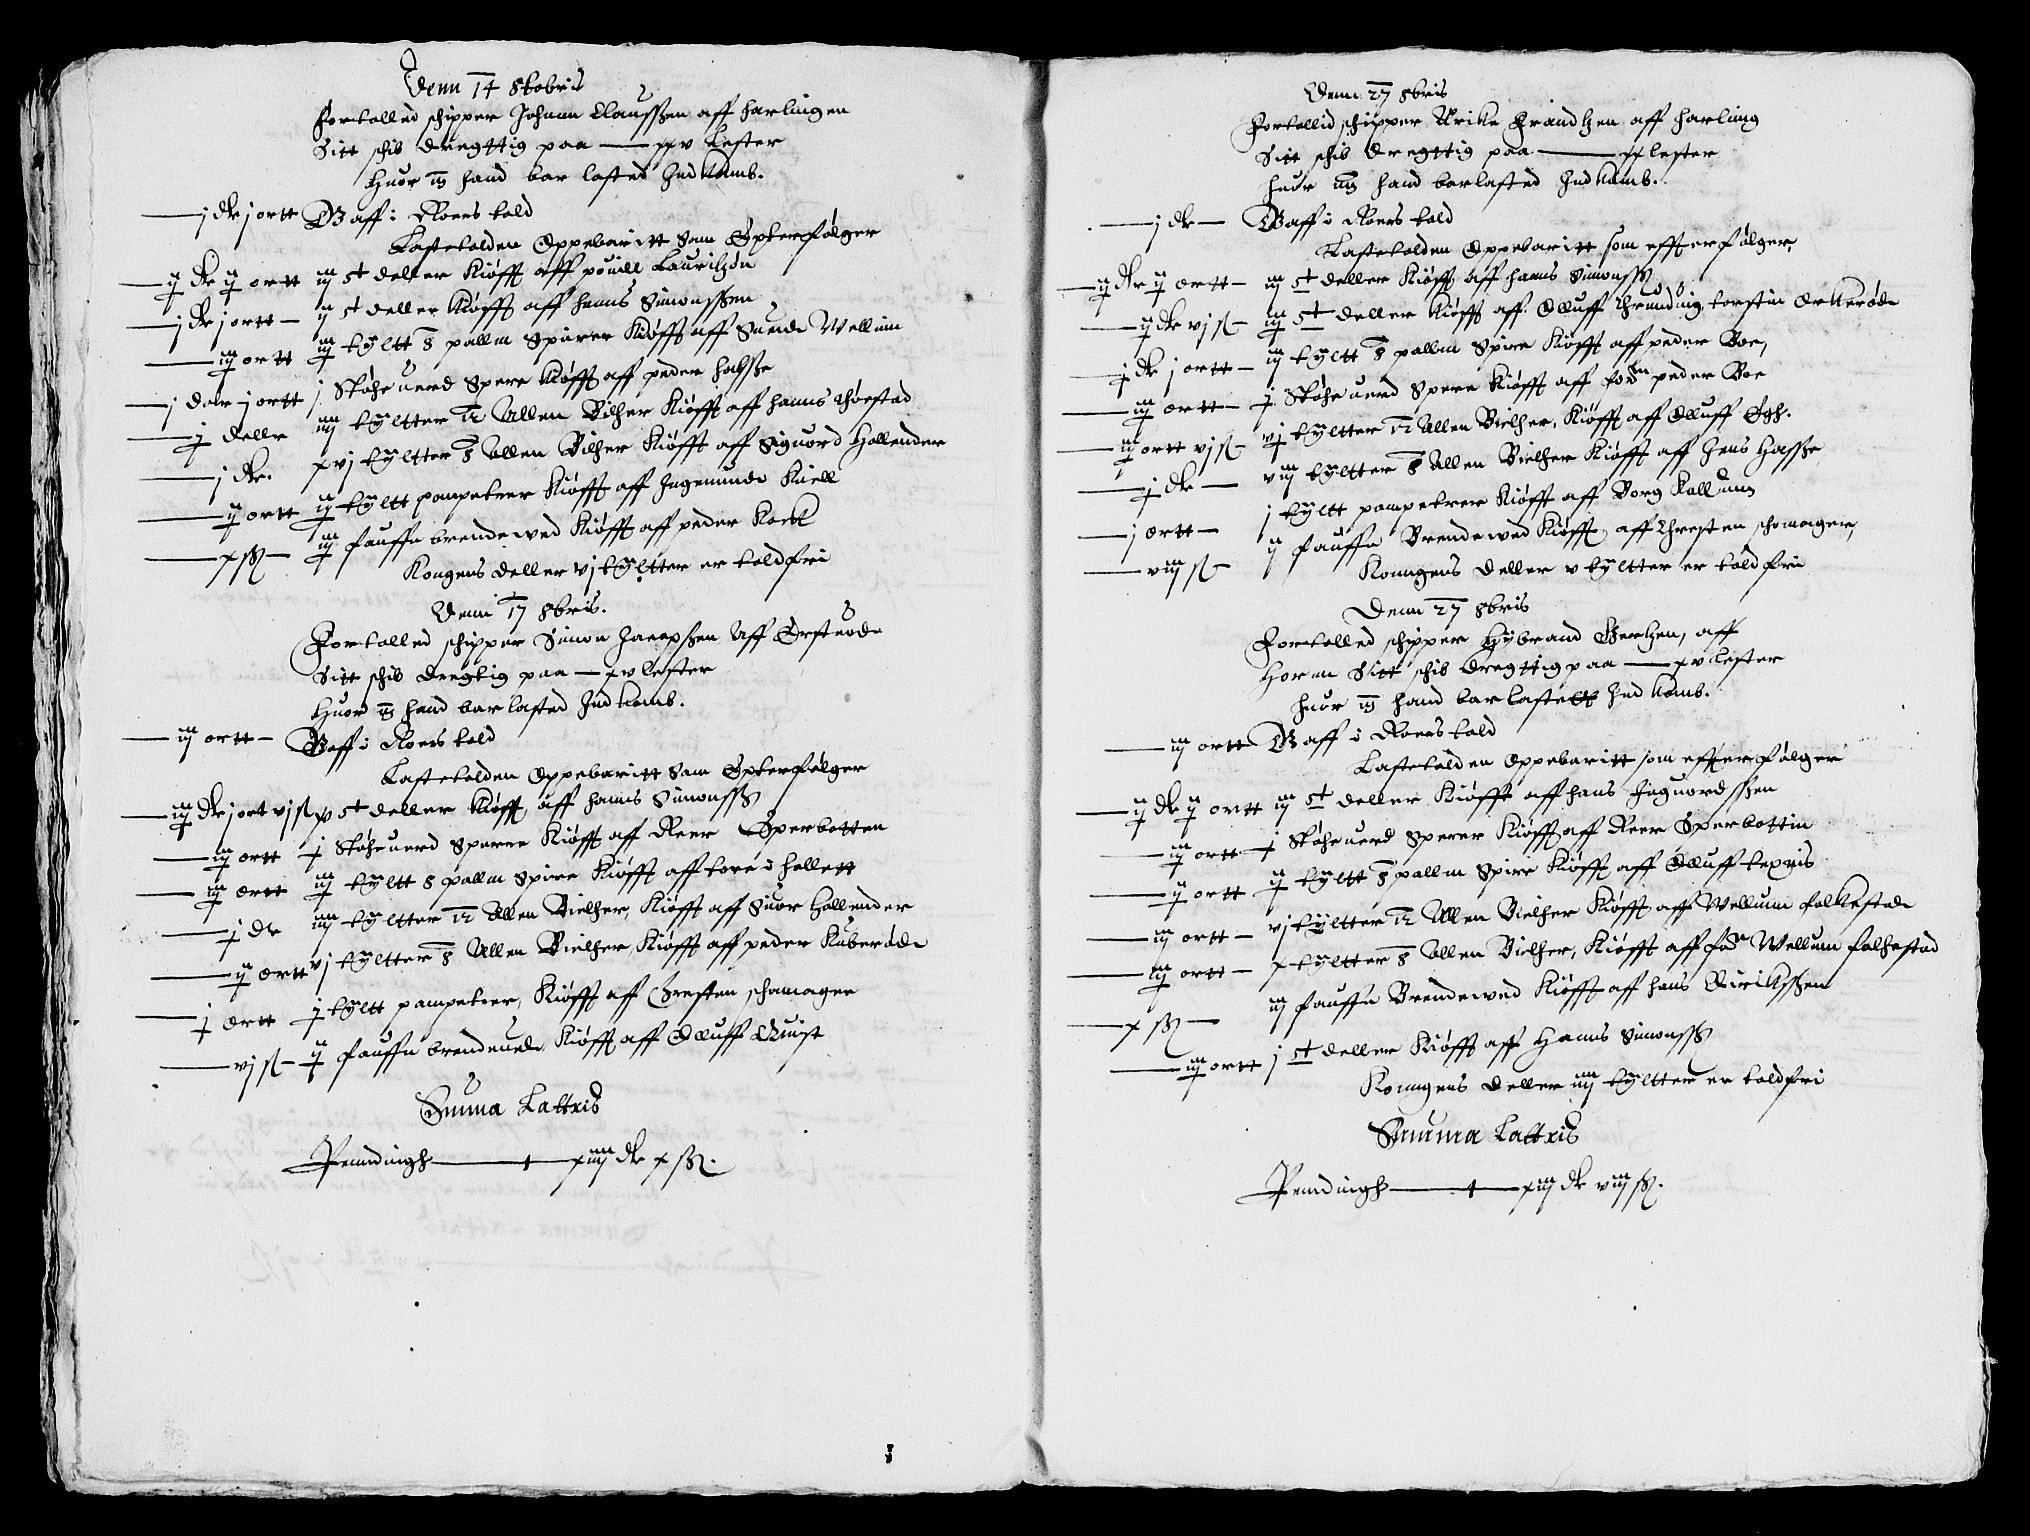 Denn 14 8tobris
Fortolled schipper Johann Claussen aff Harlingen
Sitt schib dregttig paa — xxv Lester
Huor m3 hand barlasted Indkomb.
— j dlr j ortt Gaff i Roers told
Lastetolden Oppebaritt Som Epterfølger
— ij dlr ij ortt iij ct deller Kiøfft aff pouell Lauritzøn
— j dlr j ortt — ij ct deller Kiøfft aff Hanns Simonssen
— iij ortt iij tÿltt 8 pallm Spirer Kiøfft aff Suend Wellum
— j daler j ortt j Skøhe uerd Spere Kiøfft aff peder
— j dellr iiij tÿltter 12 Allen Bilher Kiøfft aff Hanns
— j dlr. xvj tÿltter 8 Allen Bilher Kiøfft aff Siguord Hollender
— ij ortt ij tÿltt pampetrer Kiøfft aff Ingemund Kiell
— x ß — iij fauffn brendewed Kiøfft aff peder Kock
Kongens deller vj tÿltter er toldfri
Denn 17 8bris.
Fortolled schipper Simon Jacopssen Aff Ørsteröd
Sitt schib dregtig paa — xv lester
Huor m3 hand barlasted Indkomb.
— iij ortt — Gaff i Roers told
Lastetolden Oppebaritt Som Epterfølger
— iij dlr j ort vj ß iv ct deller Kiøfft aff Hanns Simonss
— iij ortt j Skøhe uerd Sperre Kiøfft aff Reer Sperbotten
— iij ortt iij tÿltt 8 pallm Spire Kiøfft aff tore i Hollett
— j dlr iiij tÿltter 12 Allen Bielher, Kiøfft aff Siuor Hollender
— ij ortt vj tÿltter 8 Allen Bielher, Kiøfft aff peder Kuberød
— j ortt j tÿltt pampetrer, Kiøfft aff Chresten schomager
— vj ß — ij fauffn brendeued Kiøfft aff Oluff Quist
Summa Lattris
Penndingh — xiiij dlr x ß.
Denn 27 8bris
Fortollid schipper Arike Frandtzen aff Harling
Sitt schib dregttig paa — xx lester
Huor m3 hand barlasted Indkomb.
— j dlr — Gaff i Roers told
Lastetolden Oppebaritt som effterfølger
— ij dlr ij ortt — iij ct deller Kiøfft aff Hanns Simonss
— ij dlr vj ß — iij ct deller Kiøfft aff Oluff
— j dlr j ortt — iij tÿltt 8 pallm Spire Kiøfft aff peder Boe,
— iij ortt — j Skøhe uerd Spere Kiøfft aff for peder Boe
— iij ortt vj ß — vj tÿltter 12 Allen Bielher, Kiøfft aff Oluff Egh.
— j dlr — viij tÿltter 8 Allen Bielher Kiøfft aff Jens Hasse
— j ortt — j tÿltt pampetrer Kiøfft aff Borg
— viij ß — ij fauffn Brendewed Kiøfft aff Chresten schomager,
Konngens deller v tÿltter er toldfri
Denn 27 8bris
Fortolled schipper Hÿbrand Gertzen, aff
Horn Sitt schib dregttig paa — xv lester
Huor m3 hand barlastett Indkomb.
— iij ortt Gaff i Roers told
Lastetolden Oppebaritt som effterfølger
— ij dlr ij ortt iij ct deller Kiøfft aff Hans Inguordssen
— iij ortt — j Skøhe uerd Sperer Kiøfft aff Reer Sperbottin
— ij ortt ij tÿltt 8 pallm Spire Kiøfft aff Oluff
— iij ortt — vj tÿltter 12 Allen Bielher Kiøfft aff Wellum Folkestad
— iij ortt — x tÿltter 8 Allen Bielher, Kiøfft aff for Wellum Folhestad
— x ß — iij fauffn Brendewed Kiøfft aff Hans Dirikssen
— iij ortt j ct deller Kiøfft aff Hanns Simonss
Konngens deller iiij tÿltter er toldfri
Summa Lattris
Penndingh — xiij dlr viij ß.